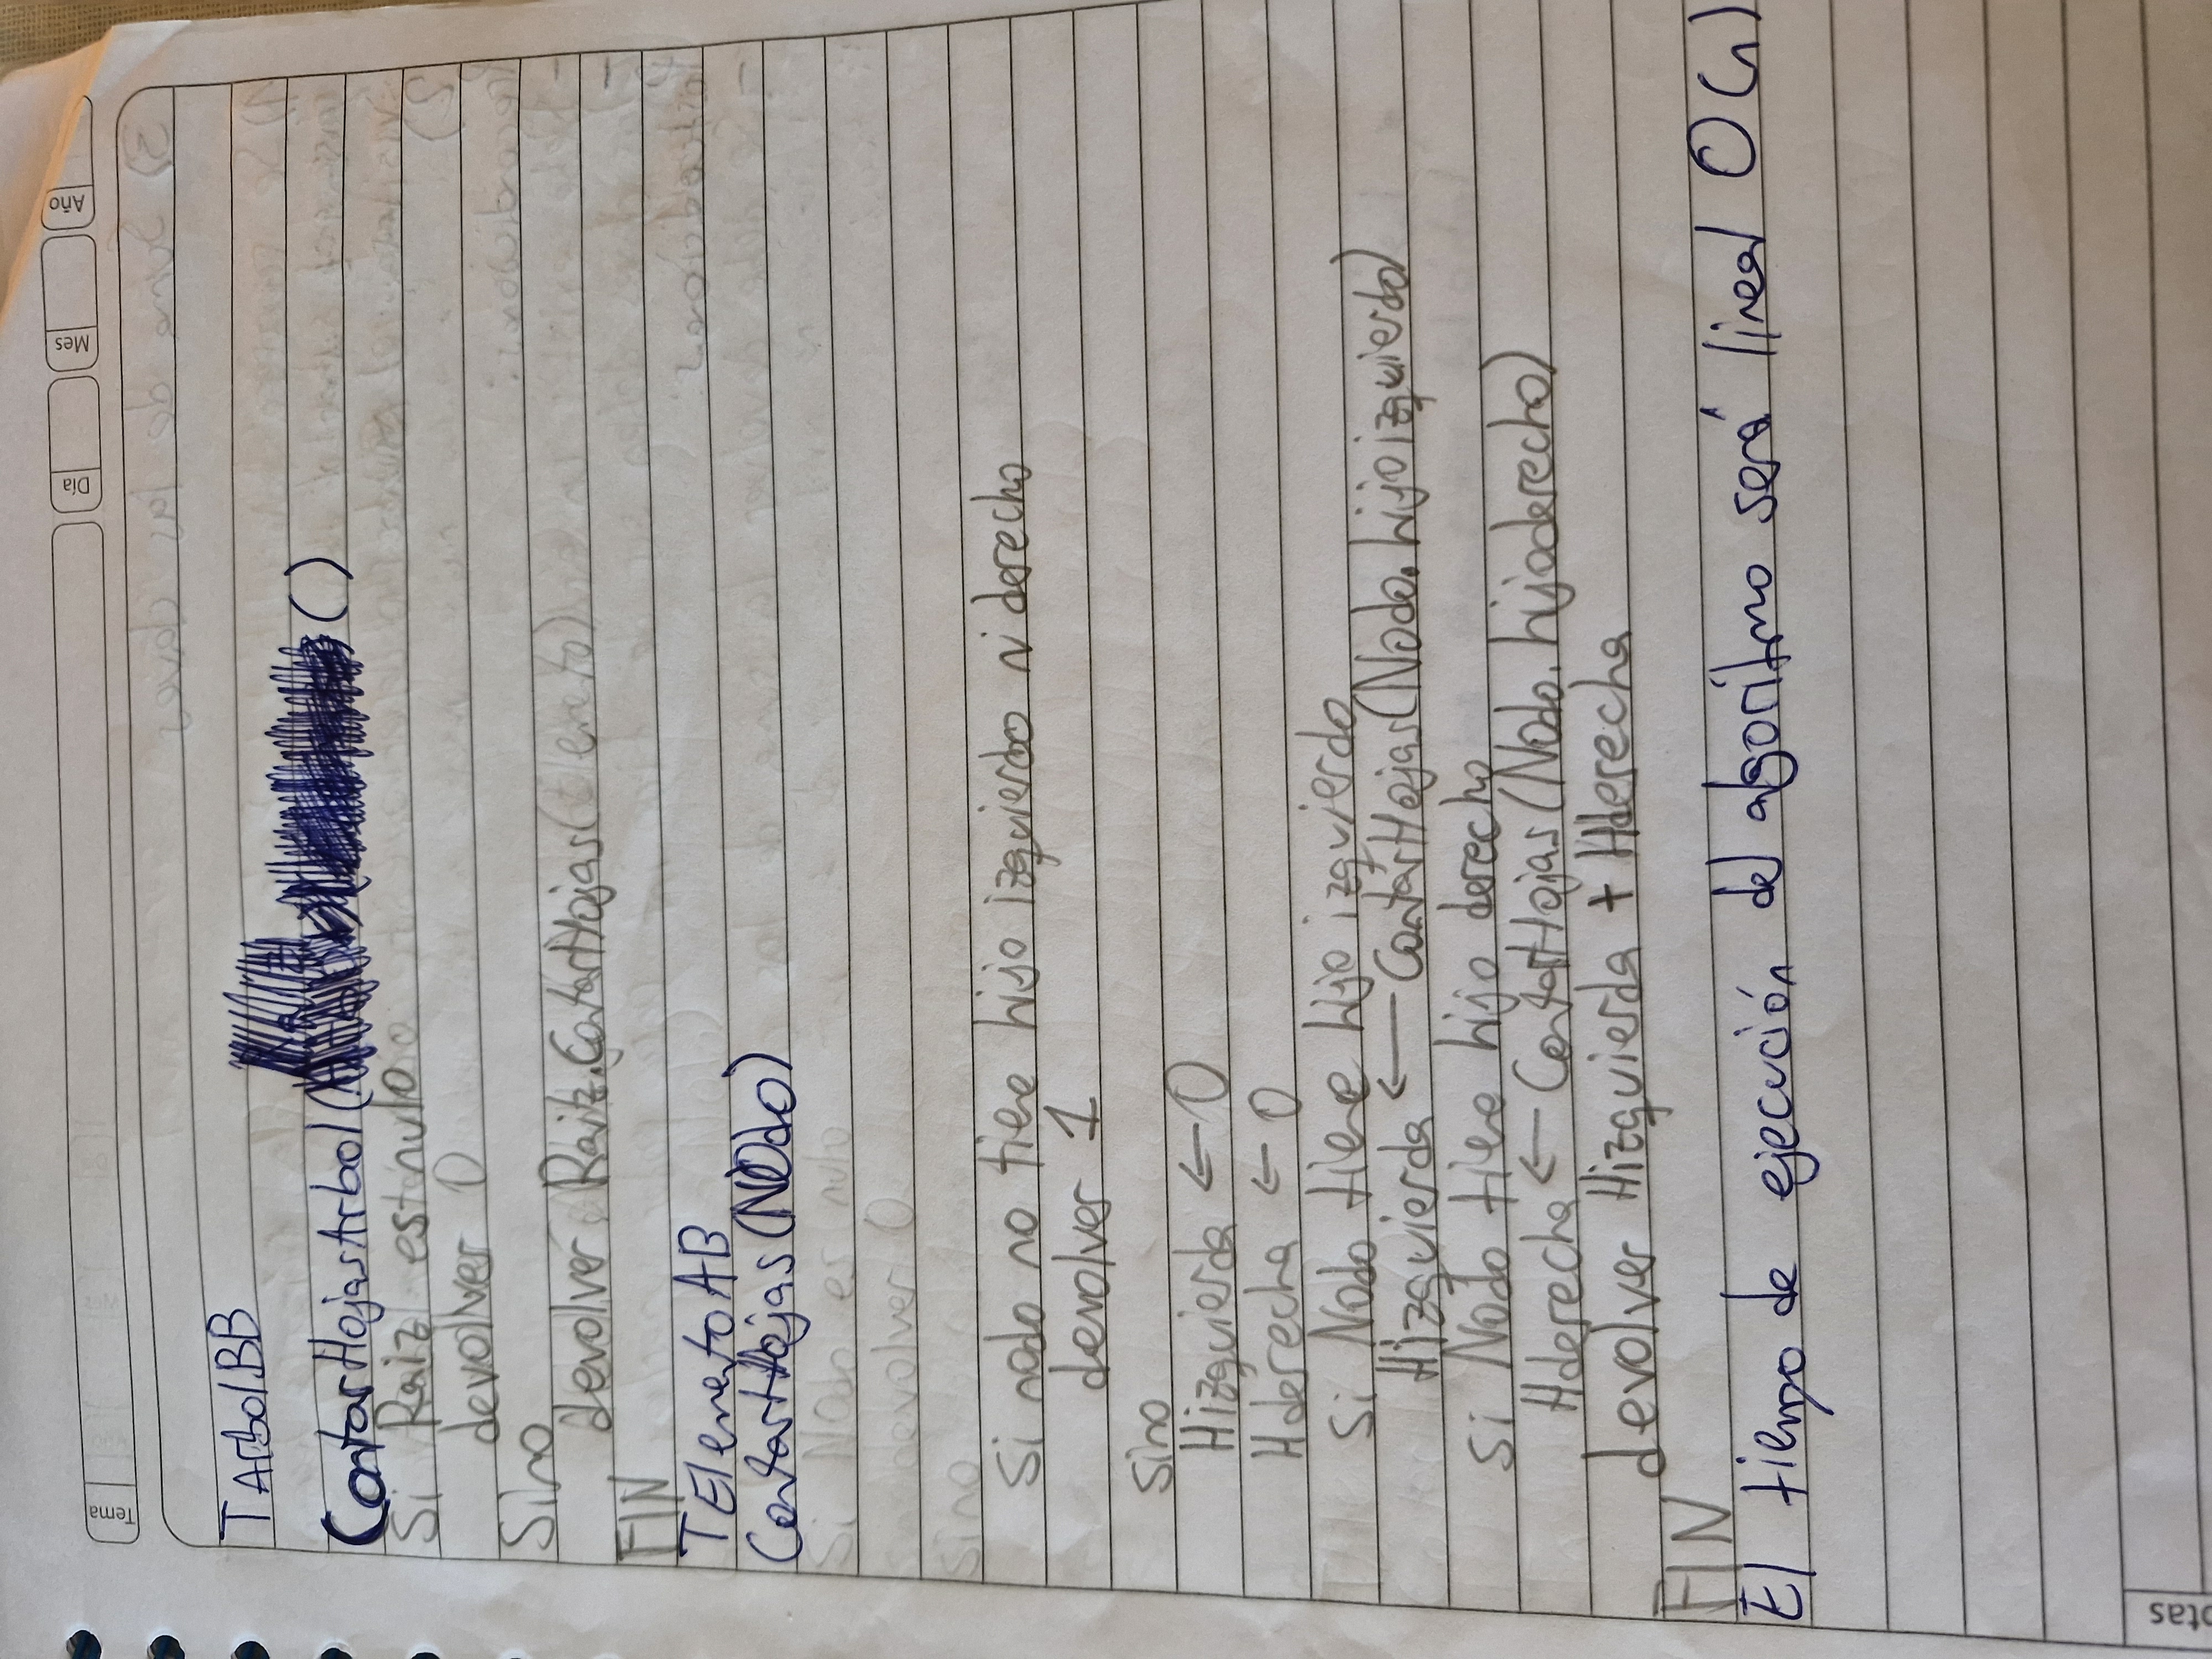 Tema
Día
Mes
Año
TArbolBB
ContarHojasArbol( ()
Si Raiz es nulo
devolver 0
Sino
devolver Raiz.ContarHojas(
FIN
TElementoAB
ContarHojas(NOdo)
Si NOdo es nulo
devolver 0
sino
Si nodo no tiene hijo izquierdo ni derecho
devolver 1
sino
Hizquierda ← 0
Hderecha ← 0
si Nodo tiene hijo izquierdo
Hizquierda ← ContarHojas(Nodo.hijoizquierdo)
si Nodo tiene hijo derecho
Hderecha ← ContarHojas(Nodo.hijoderecho)
devolver Hizquierda + Hderecha
FIN
El tiempo de ejecución del algoritmo será lineal O(n)
otas